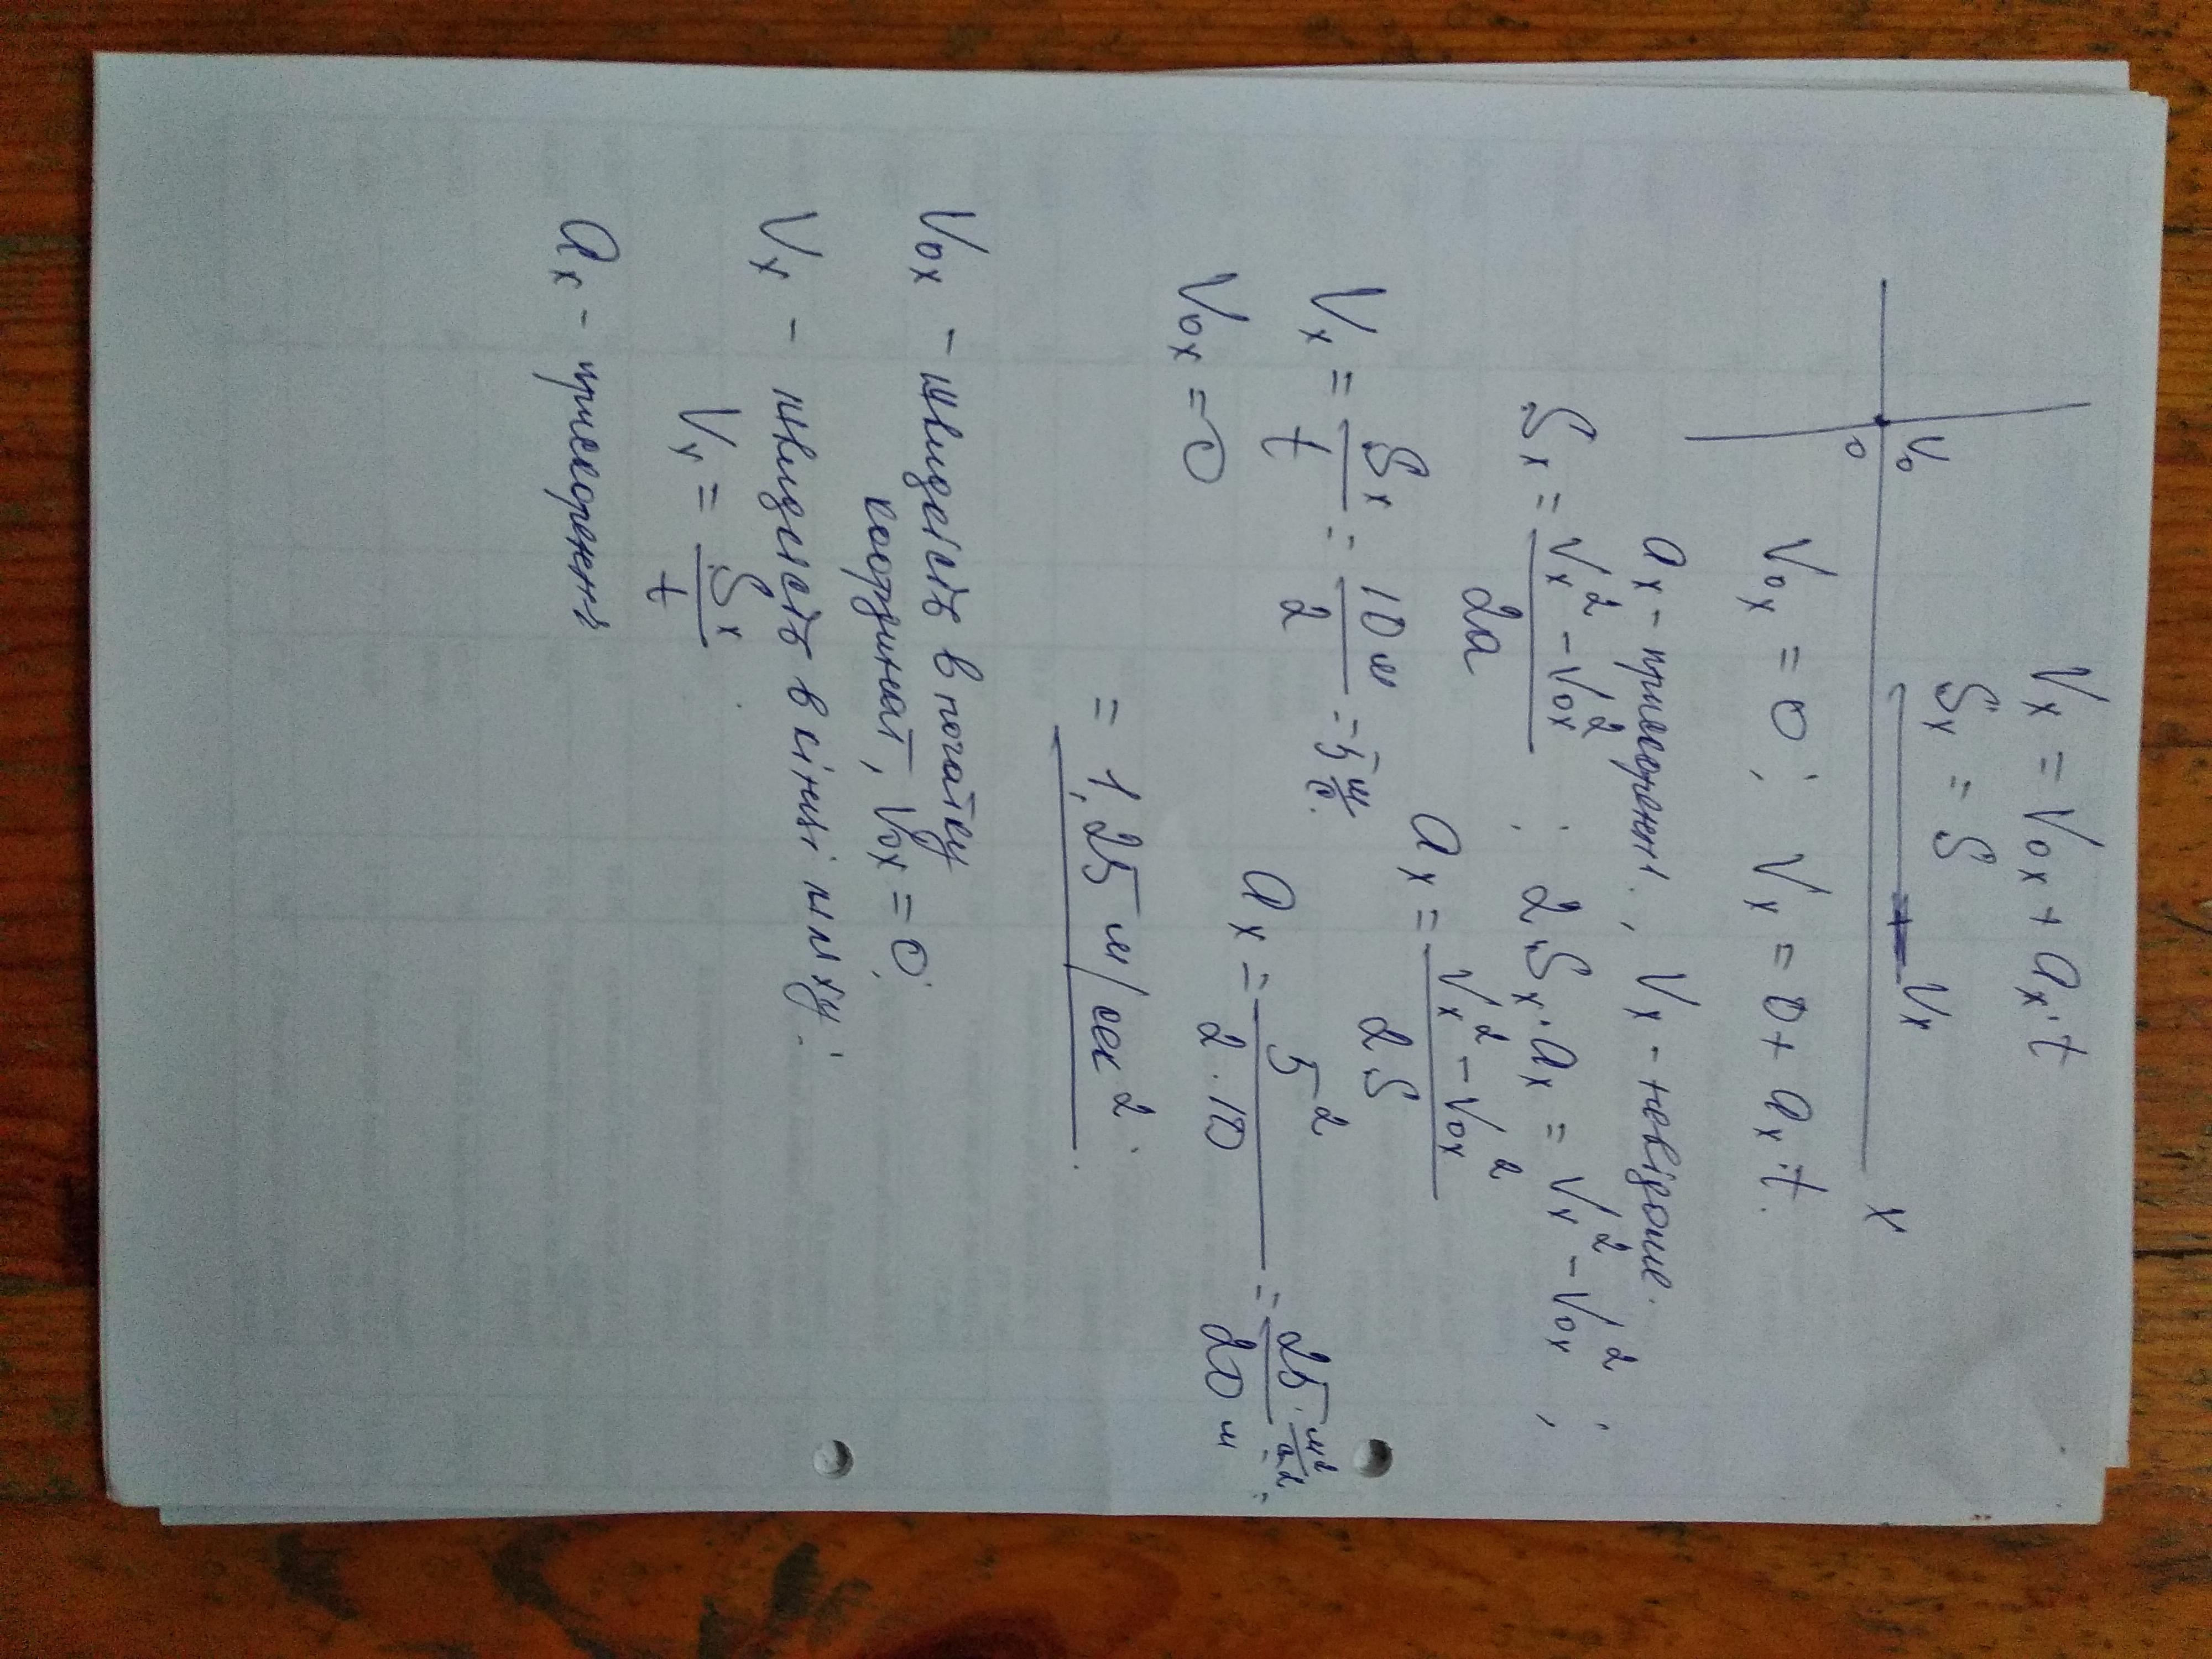 Vx = V0x + ax·t
Sx = S
V0 Vx
0 x
V0x = 0; Vx = 0 + ax·t.
ax - присорення, Vx - невідоме.
Sx = (Vx² - V0x²) / 2a ; 2·Sx·ax = Vx² - V0x² ;
ax = (Vx² - V0x²) / 2S
Vx = Sx / t = 10 м / 2 = 5 м/с.
V0x = 0
ax = 5² / (2·10) = 25 м²/с² / 20 м =
= 1,25 м/сек².
V0x - швидкість в початку
координат, V0x = 0;
Vx - швидкість в кінці шляху:
Vx = Sx / t
ax - присорення